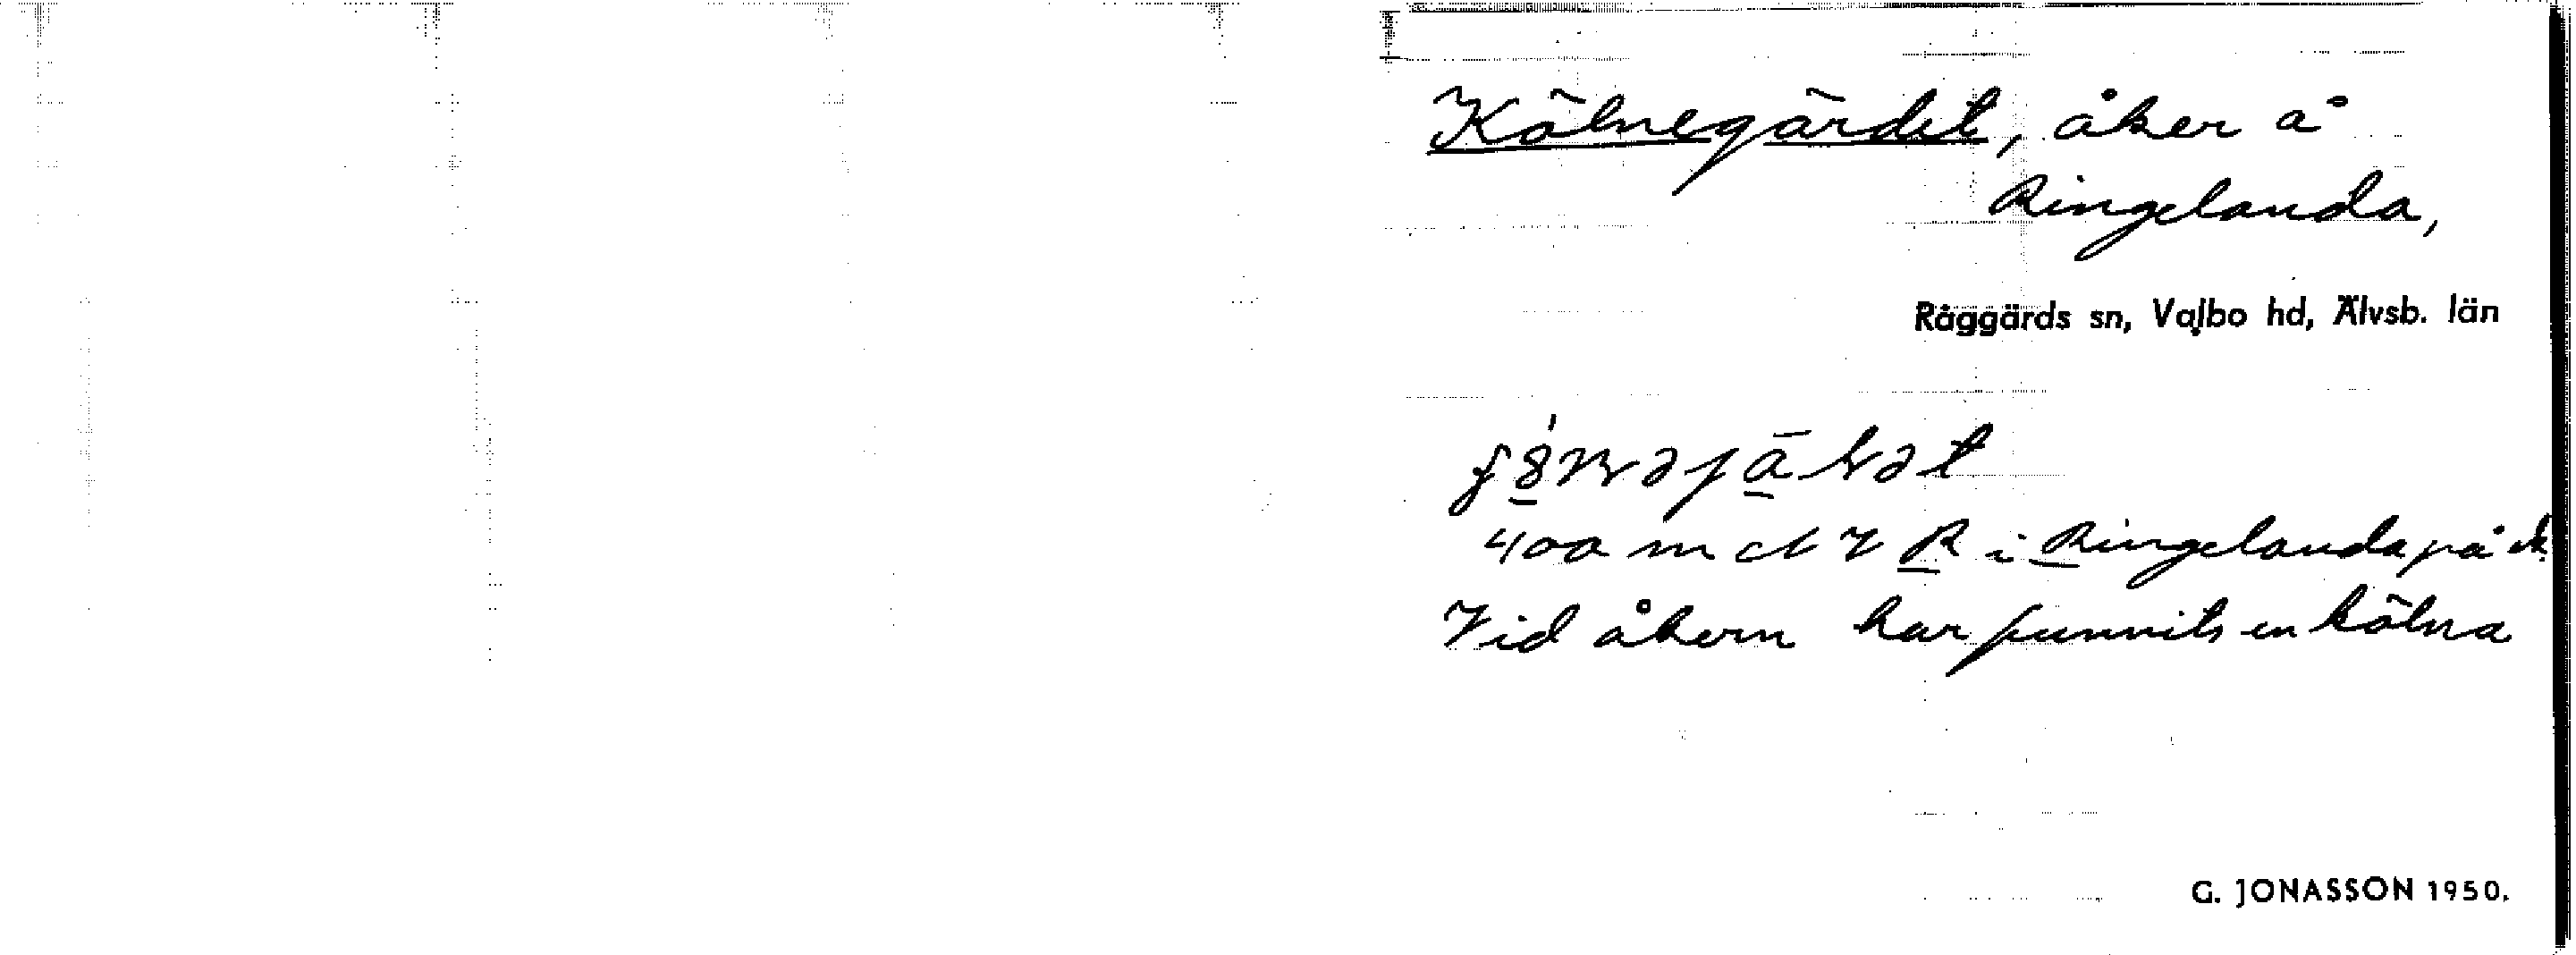 Kölnegärdet, åker å
Ringelanda,
Råggärds sn, Valbo hd, Älvsb. län
400 m NV R i Ringelanda på ek.
Vid åkern har funnits en kölna
G. JONASSON 1950.